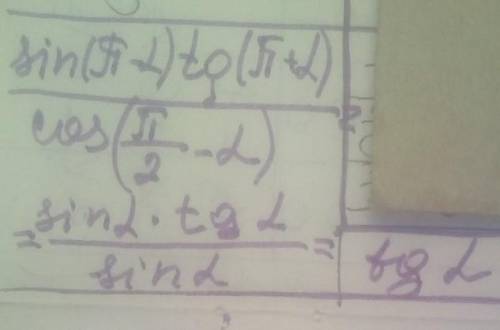 sin(π-α)tg(π+α)
cos(π/2-α) =
= sinα · tgα
sinα = tgα